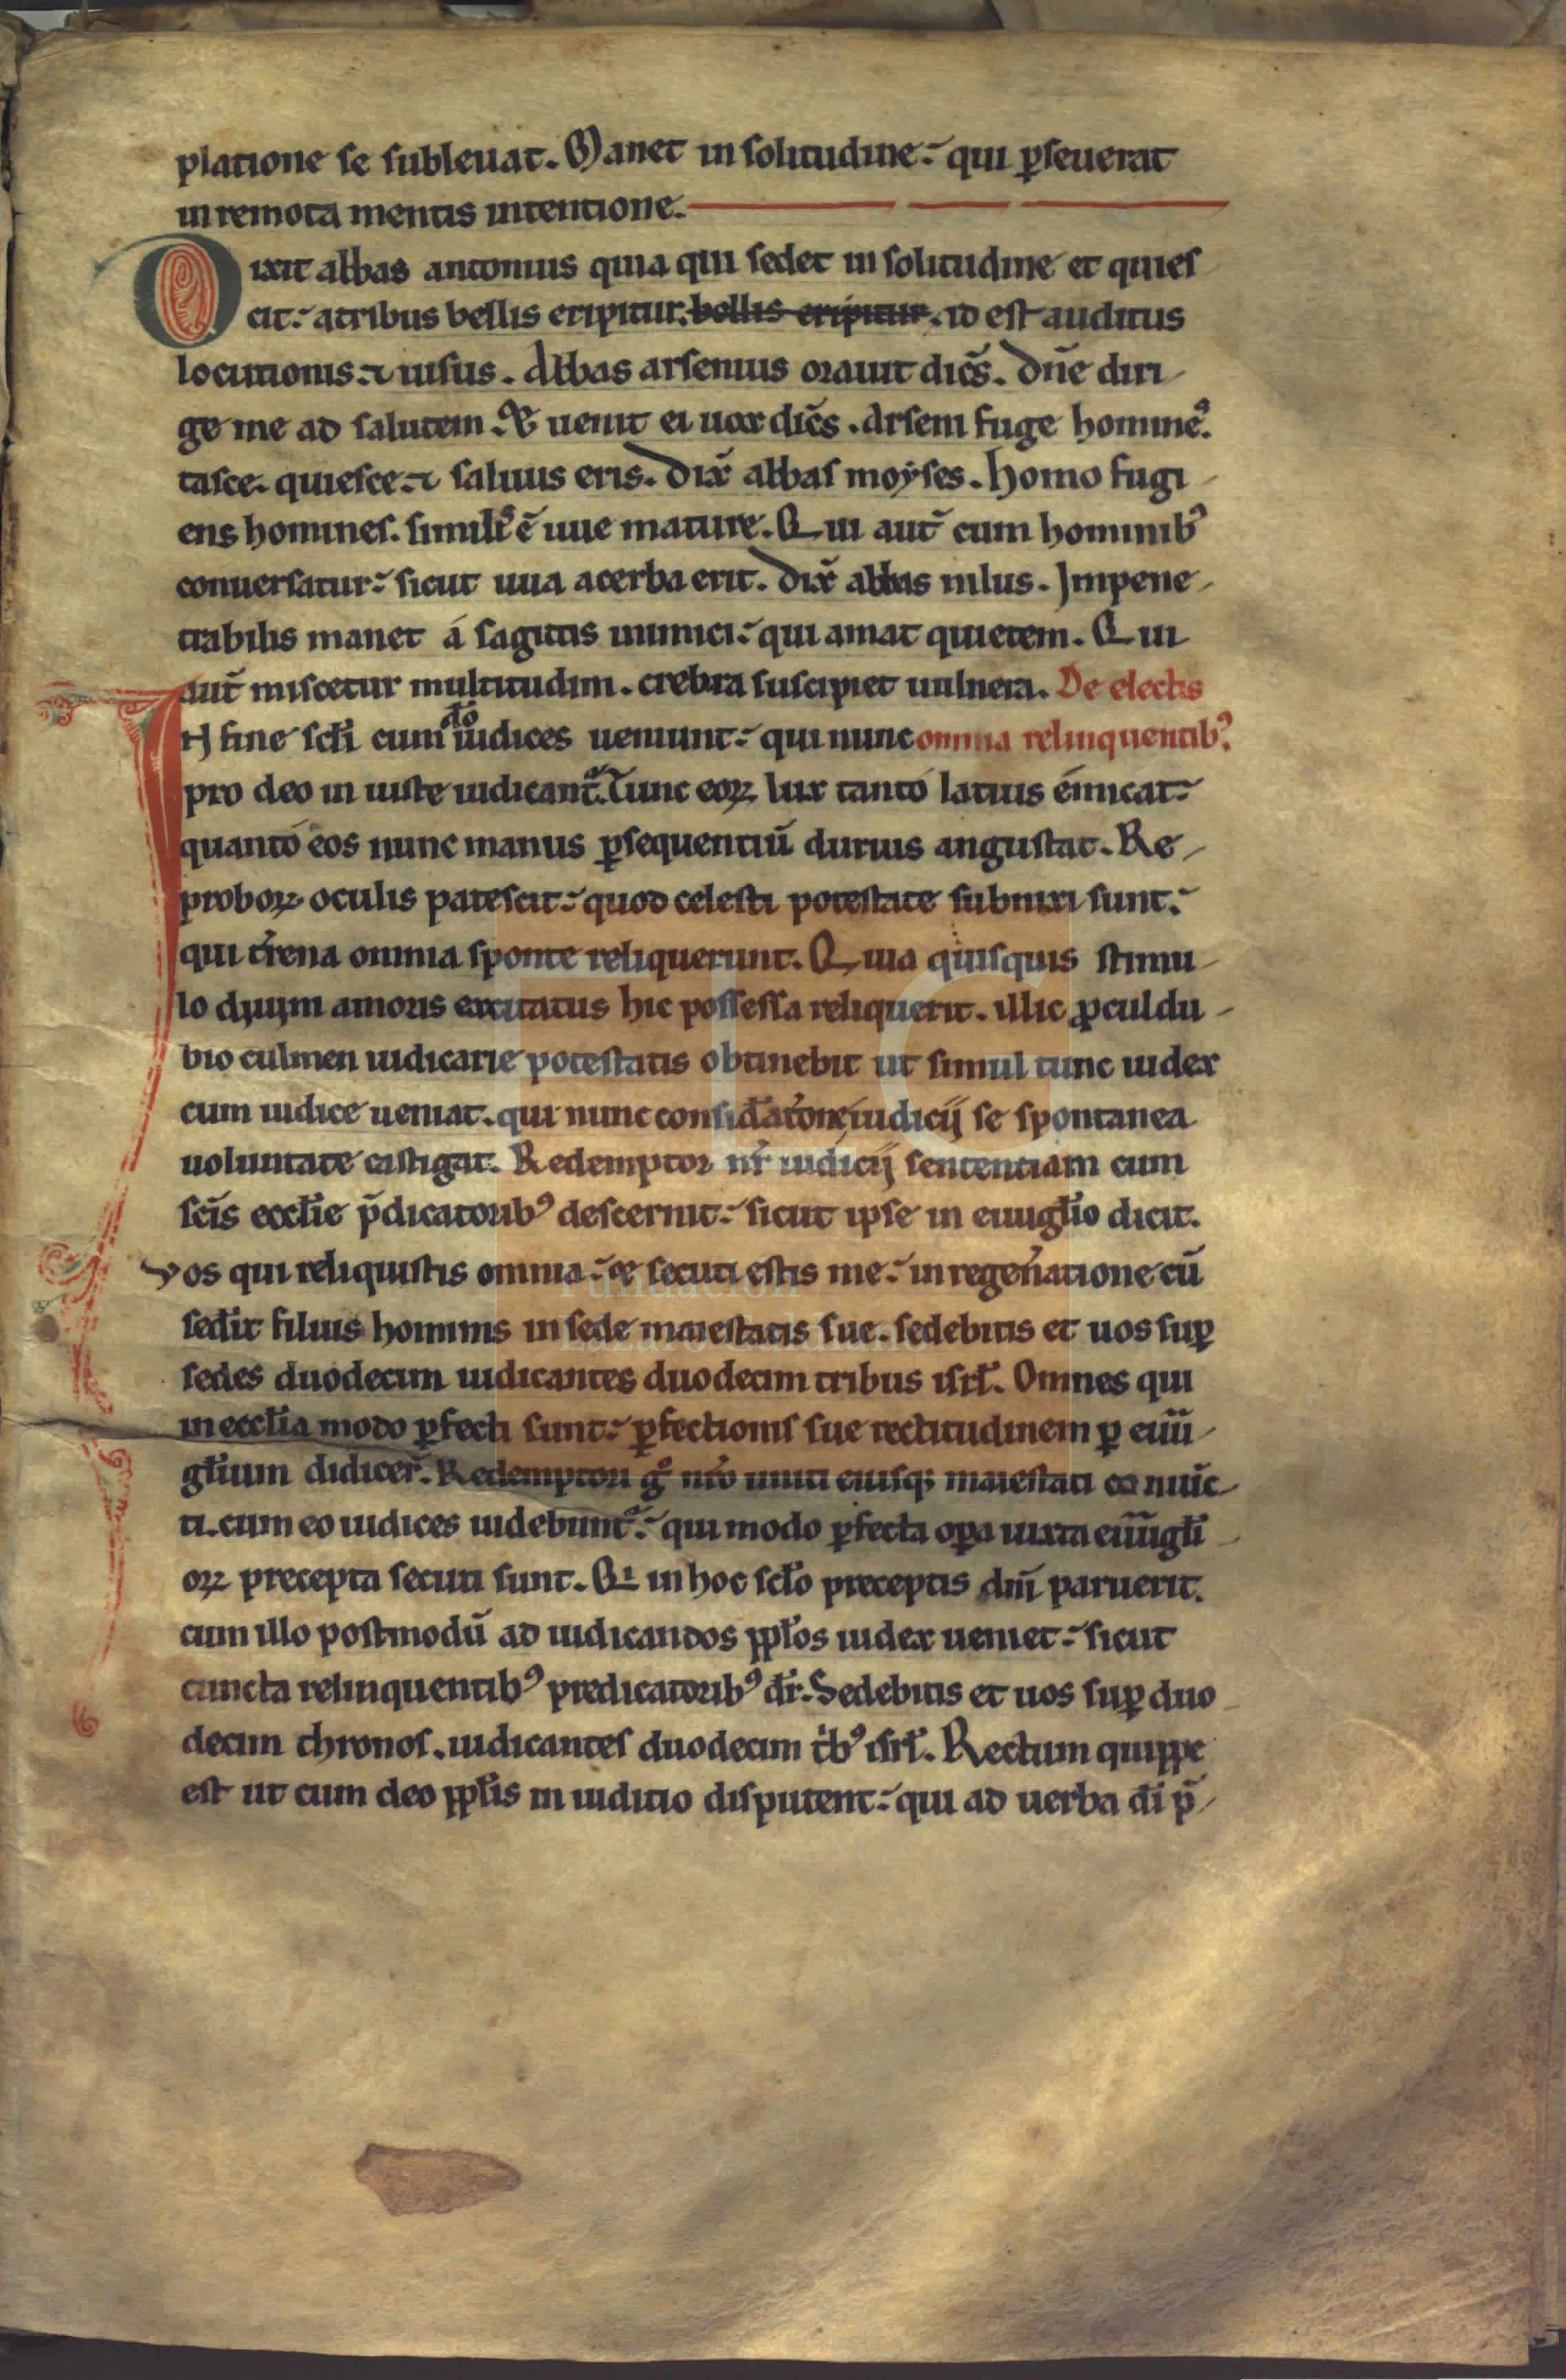 platione se subleuat. Manet in solitudine: qui ꝑseuerat
in remota mentis intentione.
Dixit abbas antonius quia qui sedet in solitudine et quies
cit: a tribus bellis eripitur. bellis eripitur. id est auditus
locutionis: ⁊ uisus. Abbas arsenius orauit dicẽs. Dñe diri
ge me ad salutem. Et uenit ei uox dicẽs. Arseni fuge homineꝰ.
tasce. quiesce: ⁊ saluus eris. Dix̃ abbas moyses. Homo fugi
ens homines. similꝰ ẽ uue mature. Qui aut̃ cum hominibꝰ
conuersatur: sicut uua acerba erit. Dix̃ abbas nilus. Impene
trabilis manet á sagittis inimici: qui amat quietem. Qui
aut̃ miscetur multitudini. crebra suscipiet uulnera. De electis
IN fine scl̃i cum dõ iudices ueniunt: qui nunc omnia relinquentibꝰ.
pro deo in iuste iudicant̃. Tunc eoꝝ lux tantó latius émicat:
quantó eos nunc manus ꝑsequentiũ durius angustat. Re
proboꝝ oculis patescit: quod celesti potestate subnixi sunt:
qui t̃rena omnia sponte reliquerunt. Quia quisquis stimu
lo diuini amoris excitatus hic possessa reliquerit. illic ꝓculdu
bio culmen iudicarie potestatis obtinebit ut simul tunc iudex
cum iudice ueniat. qui nunc consid̃atione iudicij se spontanea
uoluntate castigat. Redemptor nr̃ iudicij sententiam cum
scĩs eccl̃ie p̃dicatoribꝰ descernit: sicut ipse in euugl̃io dicit.
Vos qui reliquistis omnia: et secuti estis me: in regen̾atione cũ
sed̾it filius hominis in sede maiestatis sue. sedebitis et uos suꝑ
sedes duodecim iudicantes duodecim tribus isrl̃. Omnes qui
in eccl̃ia modo ꝑfecti sunt: ꝑfectionis sue rectitudinem ꝑ euũ
gl̃ium didicer̃. Redemptori g° nr̃o uniti eiusqꝫ maiestati coniũc
ti. cum eo iudices uidebunt̃: qui modo ꝑfecta oꝑa iuxta euũgl̃i
oꝝ precepta secuti sunt. Qi in hoc scl̃o preceptis dñi paruerit.
cum illo postmodũ ad iudicandos ppl̃os iudex ueniet: sicut
cuncta relinquentibꝰ predicatoribꝰ dr̃. Sedebitis et uos suꝑ duo
decim thronos. iudicantes duodecim t̾bꝰ isrl̃. Rectum quippe
est ut cum deo ppl̃is in iuditio disputent: qui ad uerba dĩ p̃
Fundación
Lázaro Galdiano